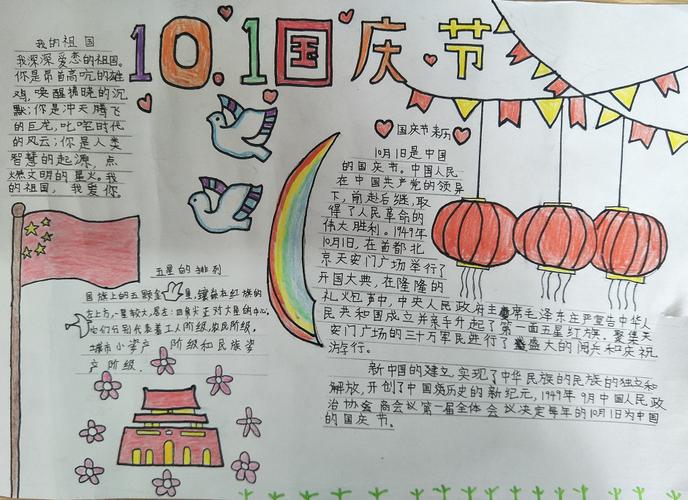 10.1国庆节
我的祖国
我深深爱恋的祖国。
你是昂首高吭的雄
鸡，唤醒拂晓的沉
默；你是冲天腾飞
的巨龙，叱咤时代
的风云；你是人类
智慧的起源，点
燃文明的星火。我
的祖国，我爱你。
五星的排列
国旗上的五颗金星，镶嵌在红旗的
左上方，一星较大，居左；四角尖正对大星的中心，
它们分别代表着工人阶级，农民阶级，
城市小资产阶级和民族资
产阶级.
国庆节来历
10月1日是中国
的国庆节。中国人民
在中国共产党的领导
下，前赴后继，取
得了人民革命的
伟大胜利。1949年
10月1日，在首都北
京天安门广场举行了
开国大典，在隆隆的
礼火包声中，中央人民政府主席毛泽东庄严宣告中华人
民共和国成立并亲手升起了第一面五星红旗。聚集天
安门广场的三十万军民进行了盛大的阅兵和庆祝
游行。
新中国的建立，实现了中华民族的民族的独立和
解放，开创了中国历史的新纪元，1949年9月中国人民政
治协会商会议第一届全体会议决定每年的10月1为中国
的国庆节.